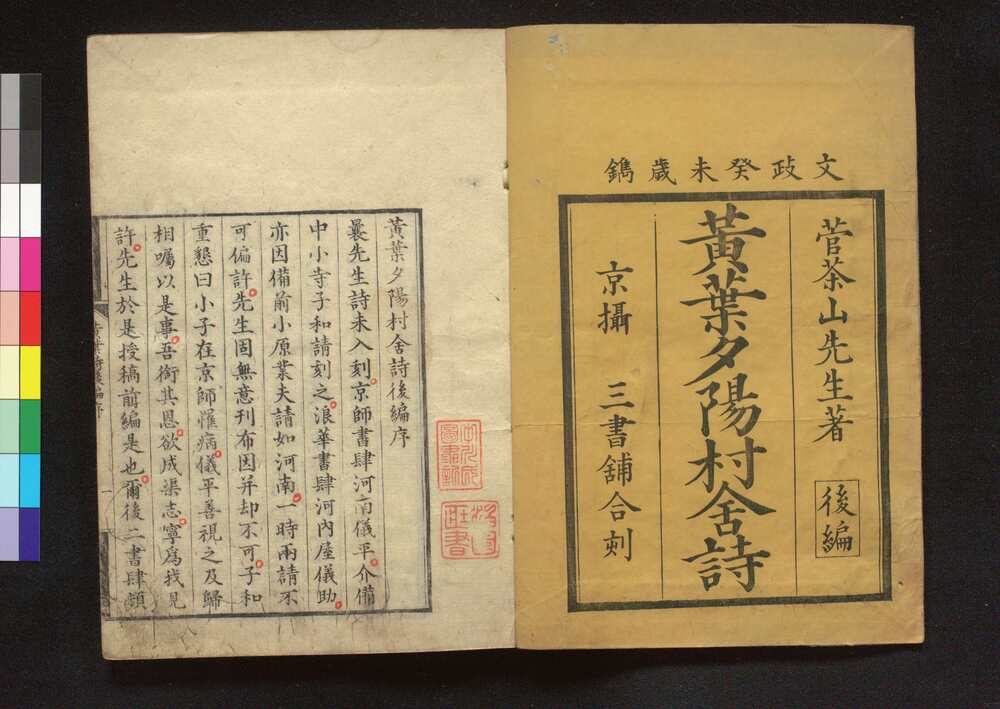 文政癸未歲鐫
菅茶山先生著
後編
黃葉夕陽村舍詩
京攝 三書舖合刻
黃葉夕陽村舍詩後編序
曩先生詩未入刻京師書肆河南儀平介備
中小寺子和請刻之浪華書肆河內屋儀助
亦因備前小原業夫請如河南一時兩請不
可偏許先生固無意刊布因并却不可子和
重懇曰小子在京師罹病儀平善視之及歸
相囑以是事吾銜其恩欲成渠志寧爲我見
許先生於是授稿前編是也爾後二書肆頻